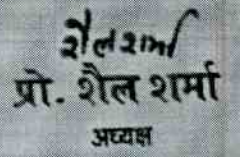 शैल शर्मा
प्रो. शैल शर्मा
अध्यक्ष